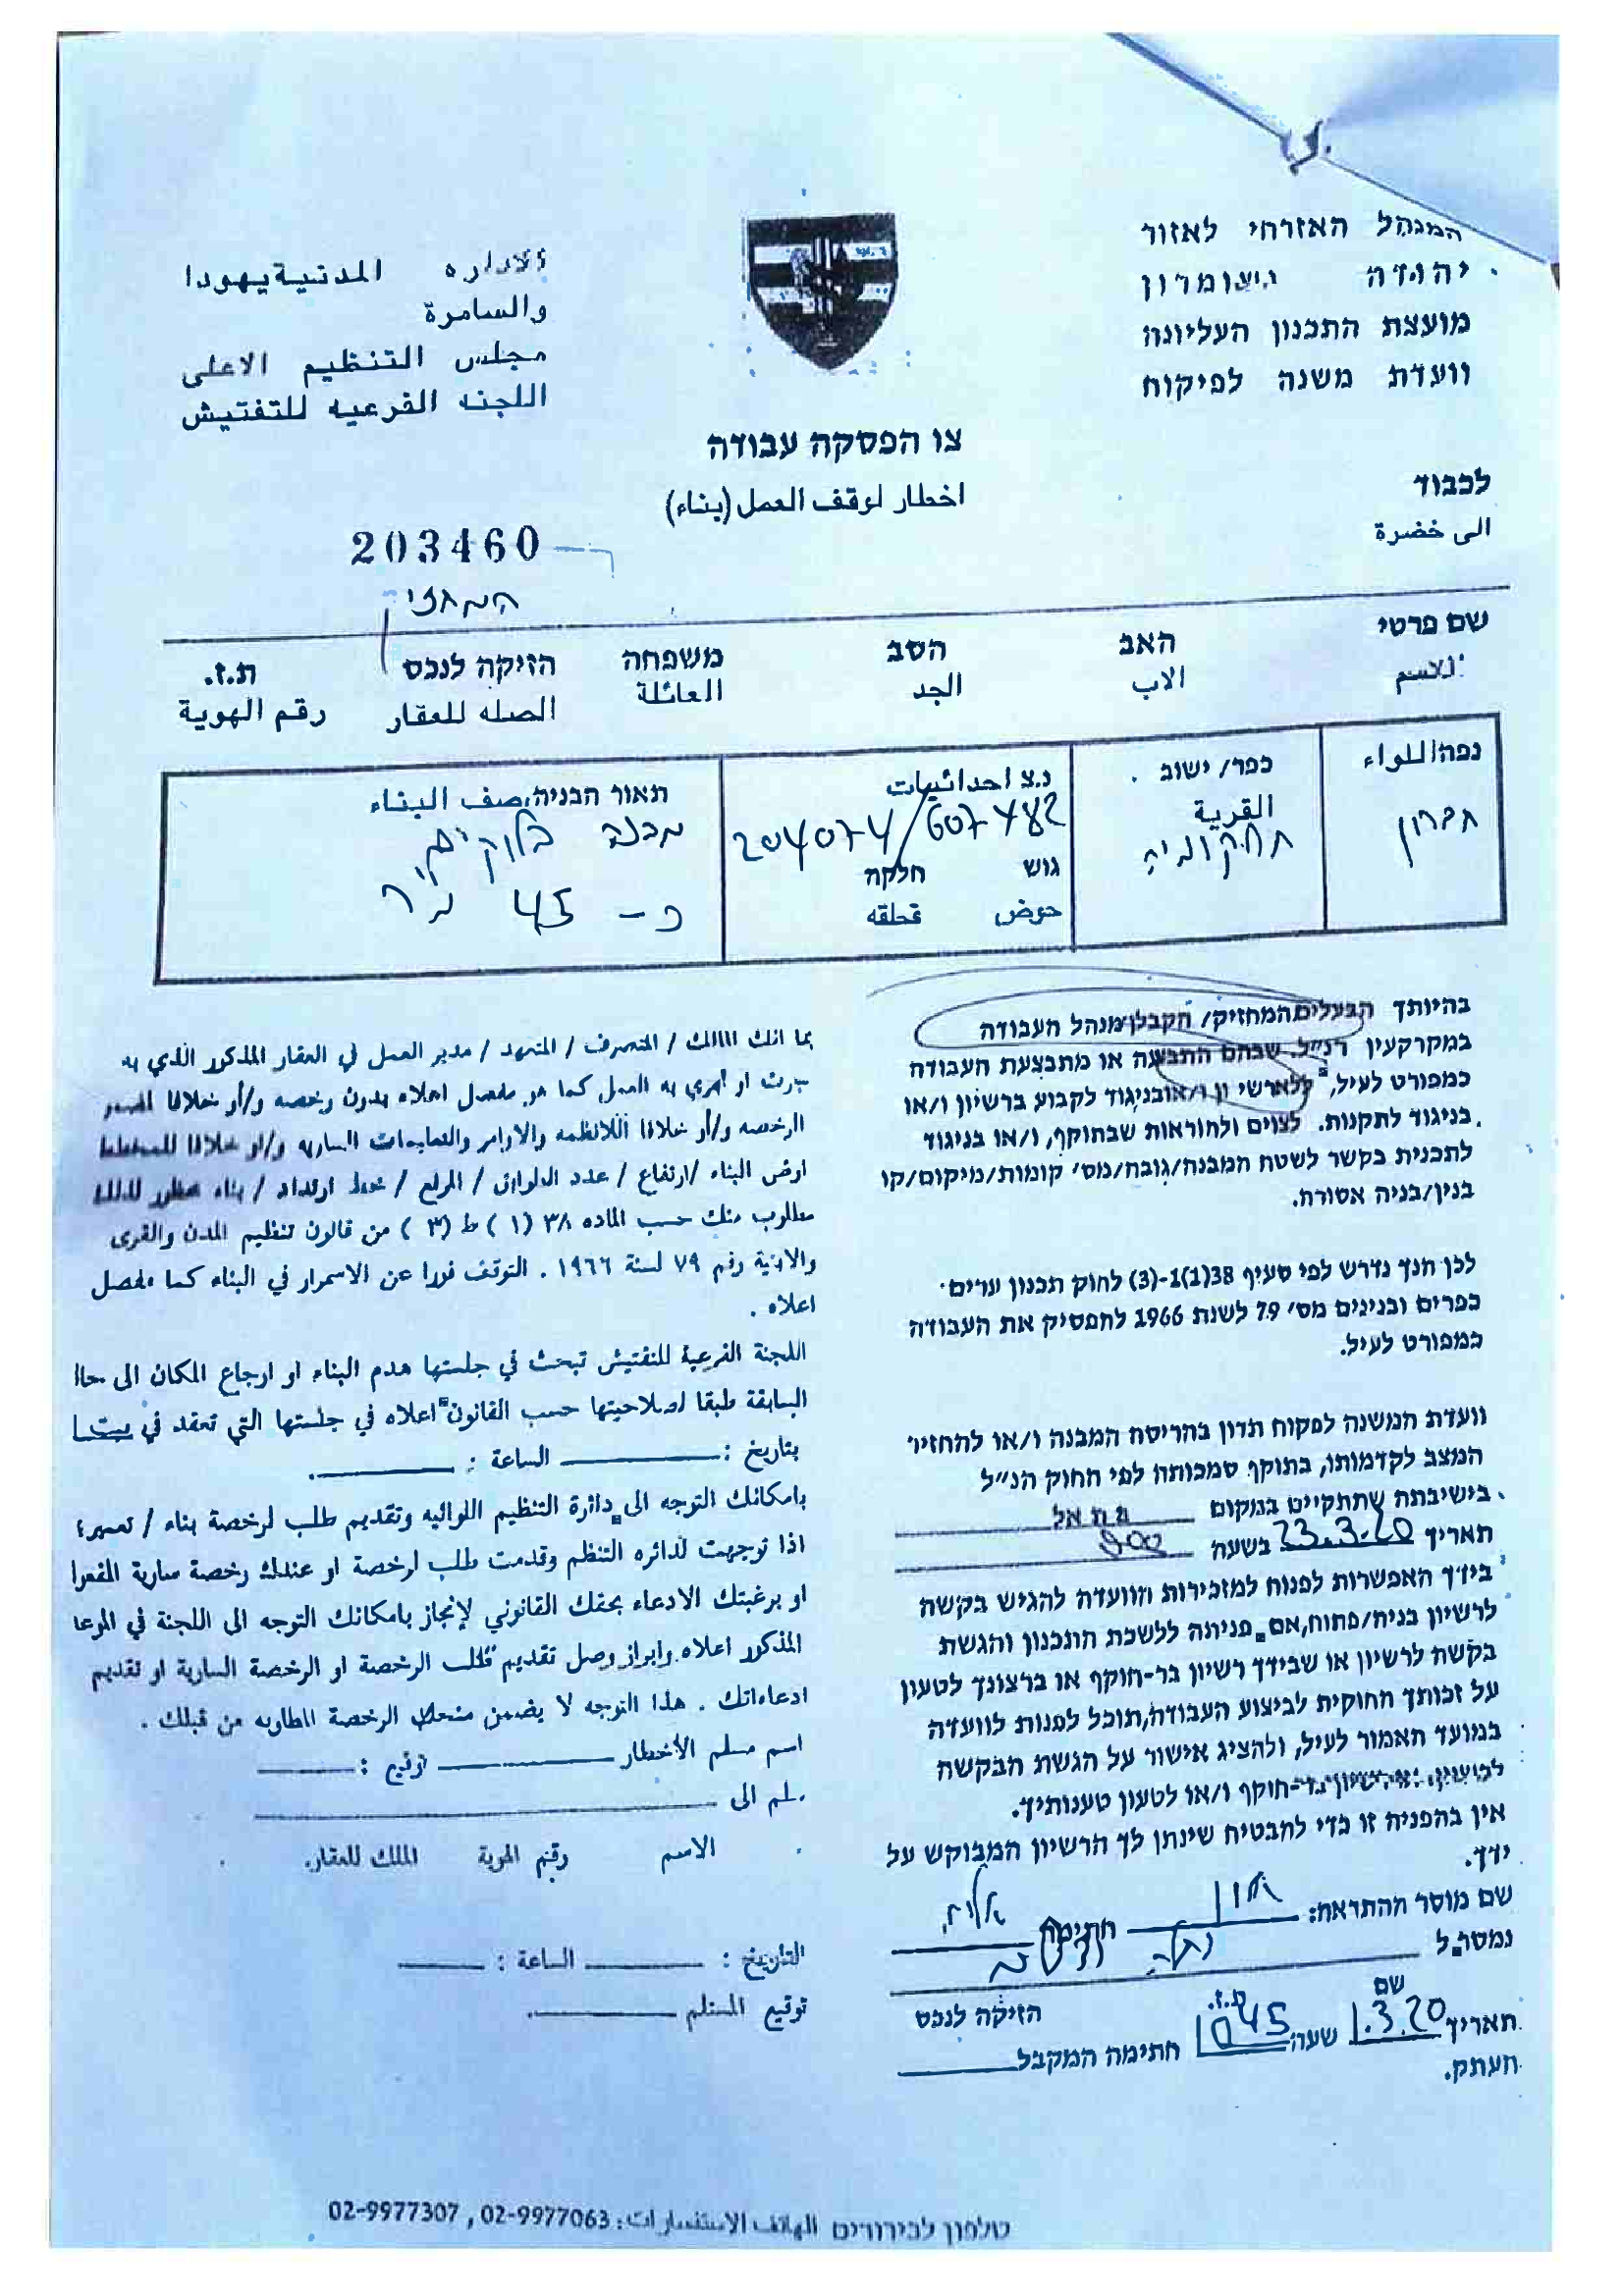 המנהל האזרחי לאזור
יהודה ושומרון
מועצת התכנון העליונה
וועדת משנה לפיקוח
الاداره المدنية يهودا
والسامرة
مجلس التنظيم الاعلى
اللجنه الفرعيه للتفتيش
צו הפסקה עבודה
اخطار لوقف العمل (بناء)
לכבוד
الى حضرة
203460
המחזיק
שם פרטי האב הסב משפחה הזיקה לנכס ת.ז.
الاسم الاب الجد العائلة الصله للعقار رقم الهوية
נפה اللواء
חברון
כפר/ ישוב
القرية
נ.צ احداثيات
204074/607482
גוש חלקה
حوض قطعه
תאור הבניה صف البناء
מבנה בלוקים
כ- 45 מ"ר
בהיותך הבעלים/המחזיק/ הקבלן/מנהל העבודה
במקרקעין הנ"ל שבהם התבצעה או מתבצעת העבודה
כמפורט לעיל, ללא רשיון ו/או בניגוד לקבוע ברשיון ו/או
בניגוד לתקנות. לצוים ולהוראות שבתוקף, ו/או בניגוד
לתכנית בקשר לשטח המבנה/גובה/מס' קומות/מיקום/קו
בנין/בניה אסורה.
לכן הנך נדרש לפי סעיף 38(1)1-(3) לחוק תכנון ערים
כפרים ובנינים מס' 79 לשנת 1966 להפסיק את העבודה
כמפורט לעיל.
וועדת המשנה לפקוח תדון בהריסת המבנה ו/או להחזיר
המצב לקדמותו, בתוקף סמכותה לפי החוק הנ"ל
בישיבתה שתתקיים במקום בית אל
תאריך 23.3.20 בשעה 9:00
בידך האפשרות לפנות למזכירות הוועדה להגיש בקשה
לרשיון בניה/פתוח, אם פניתה ללשכת התכנון והגשת
בקשה לרשיון או שבידך רשיון בר-תוקף או ברצונך לטעון
על זכותך החוקית לביצוע העבודה, תוכל לפנות לוועדה
במועד האמור לעיל, ולהציג אישור על הגשת הבקשה
לרשיון, או רשיון בר-תוקף ו/או לטעון טענותיך.
אין בהפניה זו כדי להבטיח שינתן לך הרשיון המבוקש על
ידך.
שם מוסר ההתראה: חתימה
נמסר ל
שם ת.ז. הזיקה לנכס
תאריך 1.3.20 שעה 1045 חתימה המקבל
העתק.
بما انك المالك / المتصرف / المتعهد / مدير العمل في العقار المذكور الذي به
جرت او تجري به العمل كما هو مفصل اعلاه بدون رخصه و/أو خلافا
الرخصه و/أو خلافا للانظمه والاوامر والتعليمات الساريه و/او خلافا للمخطط
ارض البناء /ارتفاع / عدد الطوابق / الموقع / خط ارتداد / بناء محظور لذلك
مطلوب منك حسب الماده ٣٨ (١) ط (٣) من قانون تنظيم المدن والقرى
والابنية رقم ٧٩ لسنة ١٩٦٦ . التوقف فورا عن الاستمرار في البناء كما مفصل
اعلاه .
اللجنة الفرعية للتفتيش تبحث في جلستها هدم البناء او ارجاع المكان الى
السابقة طبقا لصلاحيتها حسب القانون اعلاه في جلستها التي تعقد في
بتاريخ : الساعة : .
بامكانك التوجه الى دائرة التنظيم اللوائيه وتقديم طلب لرخصة بناء / تعمير؛
اذا توجهت لدائره التنظم وقدمت طلب لرخصة او عندك رخصة سارية
او برغبتك الادعاء بحقك القانوني لإنجاز بامكانك التوجه الى اللجنة في
المذكور اعلاه وابراز وصل تقديم طلب الرخصة او الرخصة السارية او تقديم
ادعاءاتك . هذا التوجه لا يضمن منحك الرخصة المطلوبه من قبلك .
اسم مسلم الأخطار توقيع :
سلم الى
الاسم رقم الهوية الملك للعقار.
التاريخ : الساعة :
توقيع المستلم .
טלפון לבירורים الهاتف للاستفسارات: 02-9977063 , 02-9977307